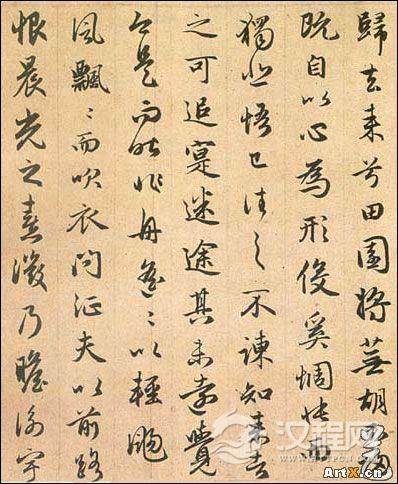 歸去来兮田園将蕪胡不歸
既自以心為形役奚惆悵而
獨悲悟已往之不諫知来者
之可追寔迷途其未遠覺
今是而昨非舟遥〻以輕颺
風飄〻而吹衣問征夫以前路
恨晨光之熹微乃瞻衡宇
汉程网
ArtX.cn